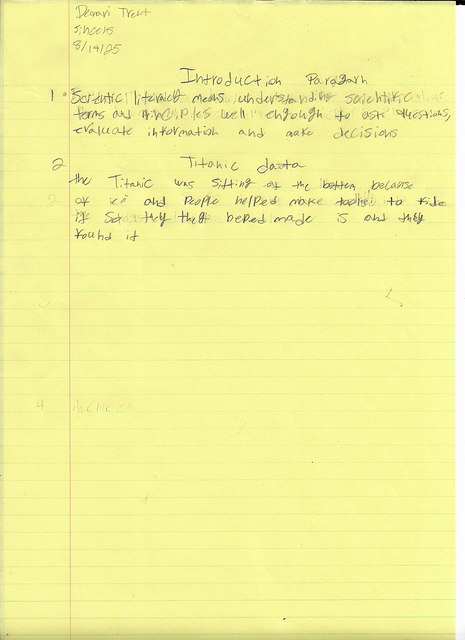 Demari Trent
8/14/25
Introduction Paragarh
1. Scientic literacy means understanding scientific
terms and principles well enghough to ask questions,
evaluate information and make decisions
2 Titanic daata
the Titanic was sitting at the bottem because
of ice and People helped make to
it so they they made is and they
found it
4